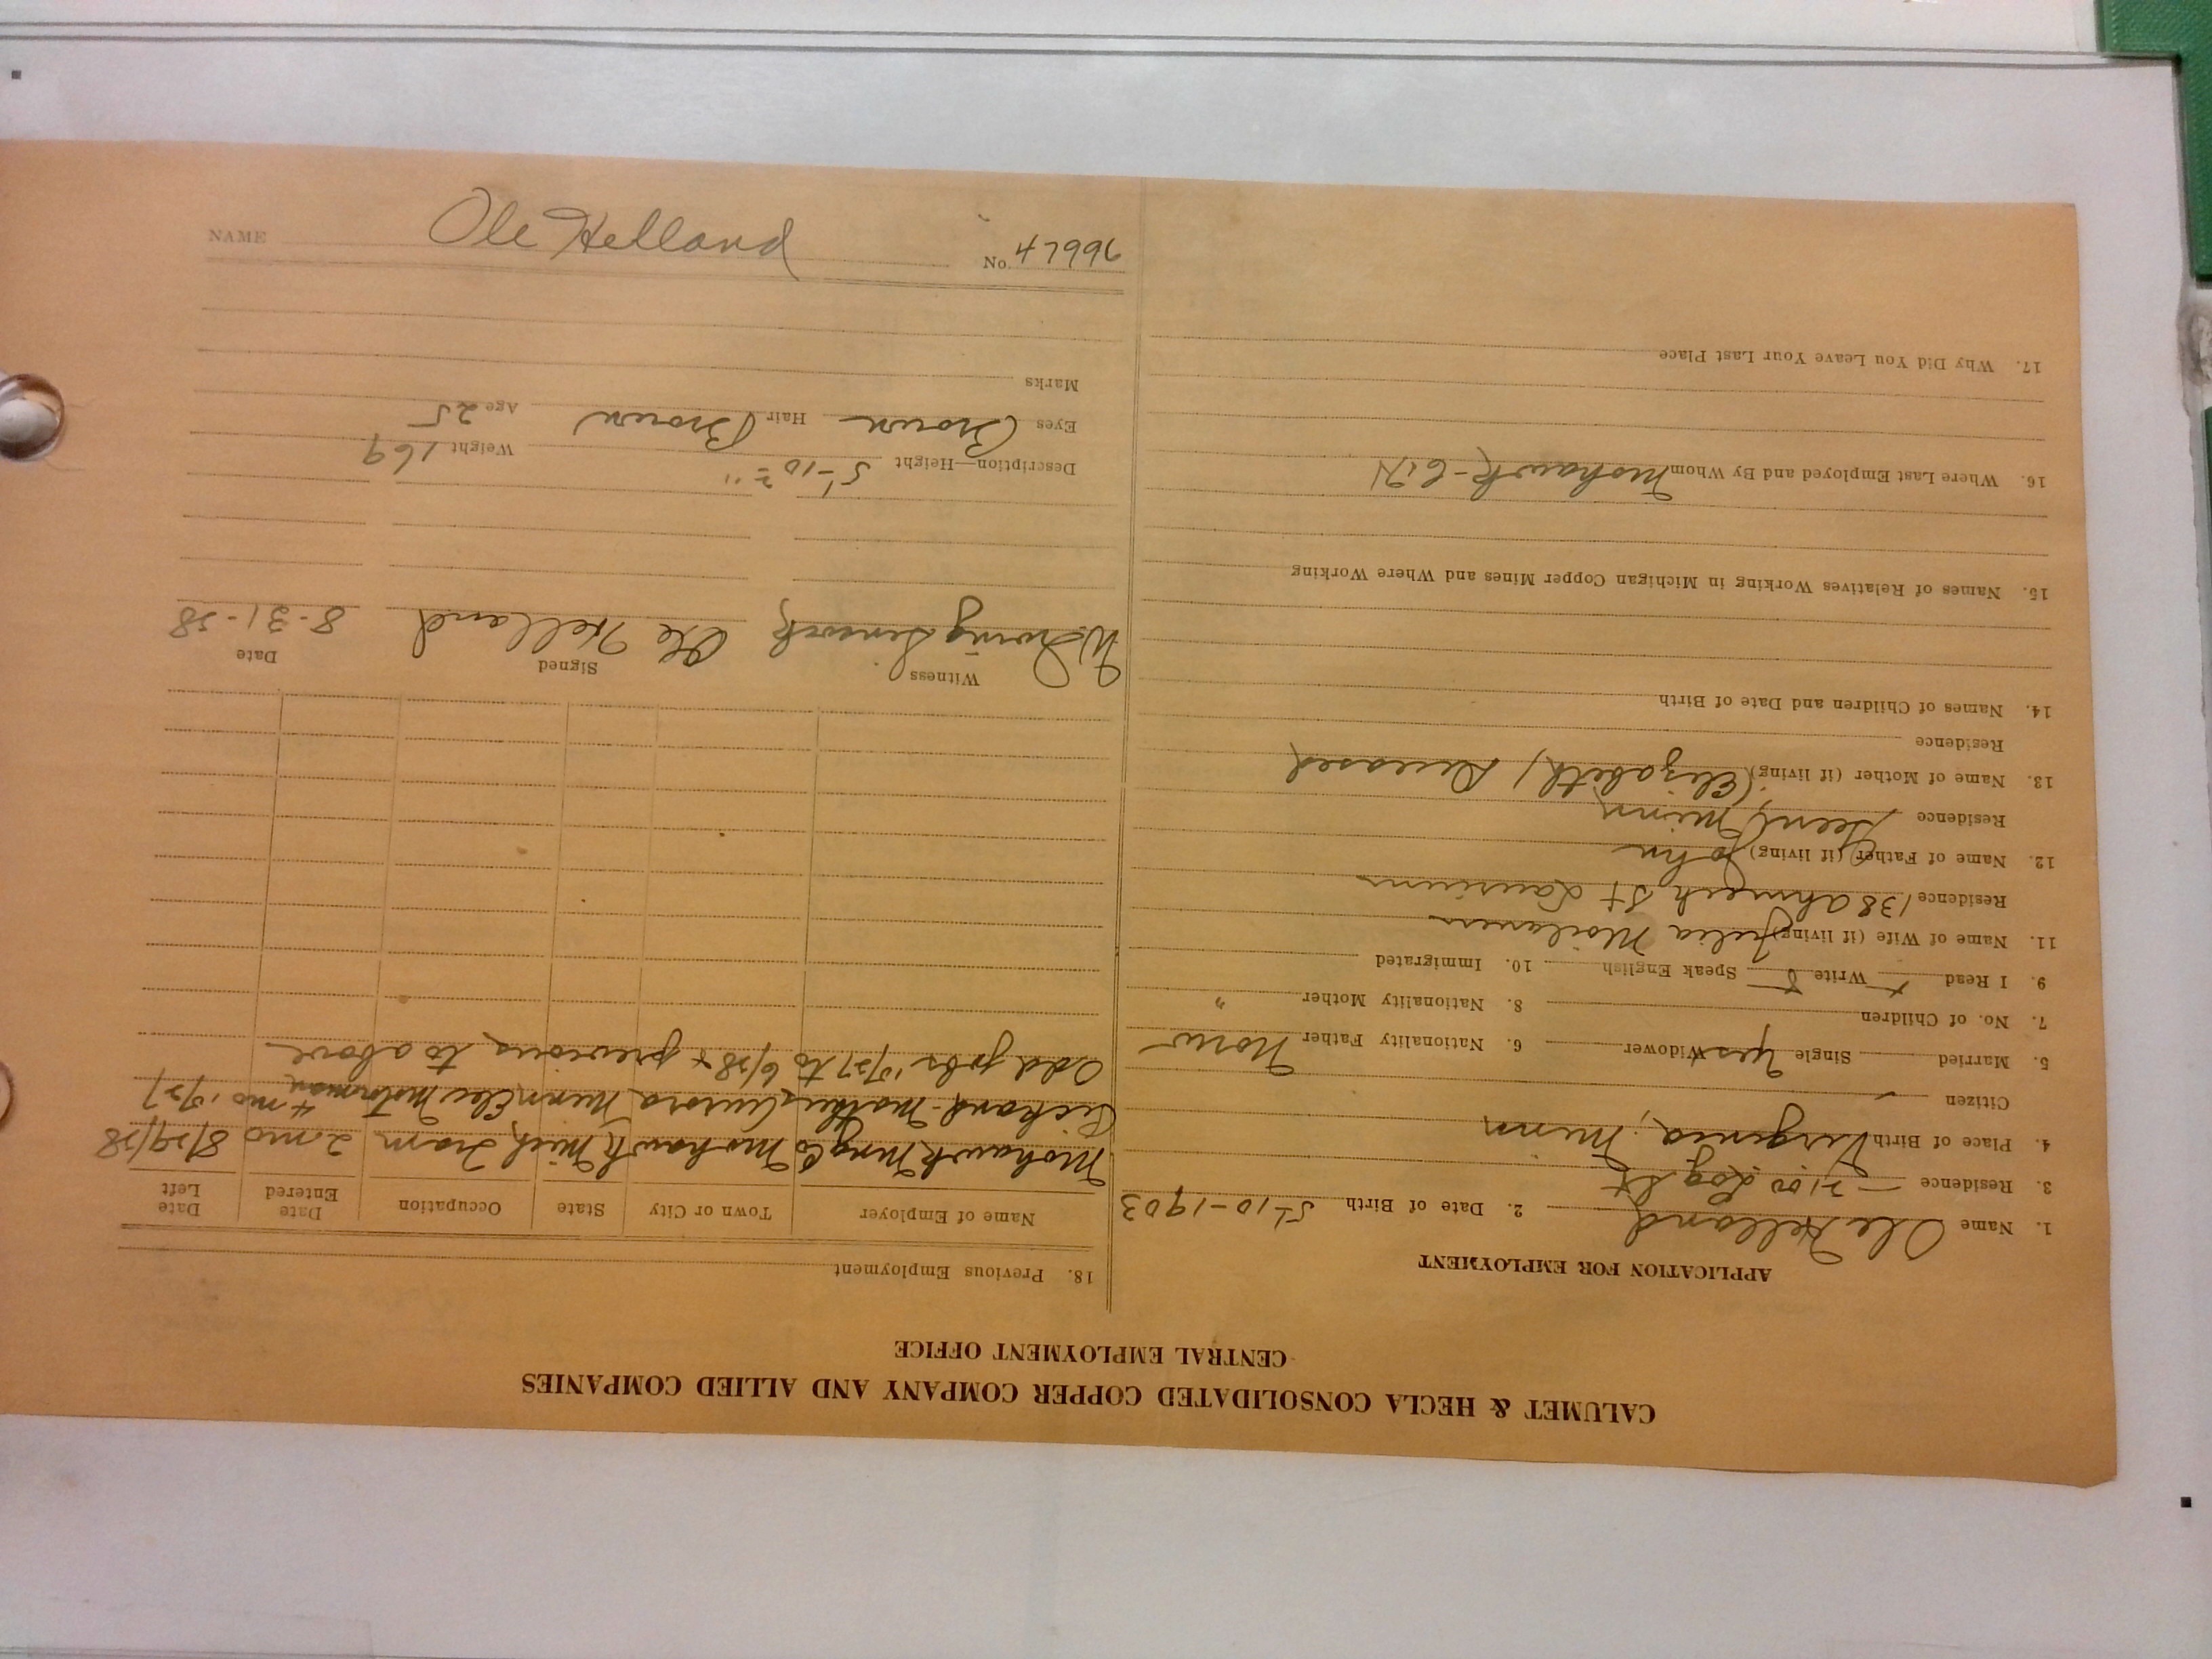 CALUMET & HECLA CONSOLIDATED COPPER COMPANY AND ALLIED COMPANIES
CENTRAL EMPLOYMENT OFFICE
APPLICATION FOR EMPLOYMENT
1. Name Ole Helland 2. Date of Birth 5-10-1903
3. Residence 2100 Log St
4. Place of Birth Virginia, Minn
Citizen ✓
5. Married Single Yes Widower 6. Nationality Father Norw
7. No. of Children 8. Nationality Mother "
9. I Read Write Speak English 10. Immigrated
11. Name of Wife (if living) Julia Moilanen
Residence 138 Ahmeek St Laurium
12. Name of Father (if living) John
Residence Minn
13. Name of Mother (if living) (Elizabeth) Deceased
Residence
14. Names of Children and Date of Birth
15. Names of Relatives Working in Michigan Copper Mines and Where Working
16. Where Last Employed and By Whom Mohawk
17. Why Did You Leave Your Last Place
18. Previous Employment
Name of Employer Town or City State Occupation Date Entered Date Left
Mohawk Mng Co Mohawk Mich Tram 2 mo 8/29/28
Pickand-Mather Aurora Minn Elec Motorman 4 mo 10/27
Odd jobs 10/27 to 6/28 & previous to above
Witness Signed Date
W. Irving Ole Helland 8-31-28
Description—Height 5'-10 Weight 169
Eyes Brown Hair Brown Age 25
Marks
NAME Ole Helland No. 47996